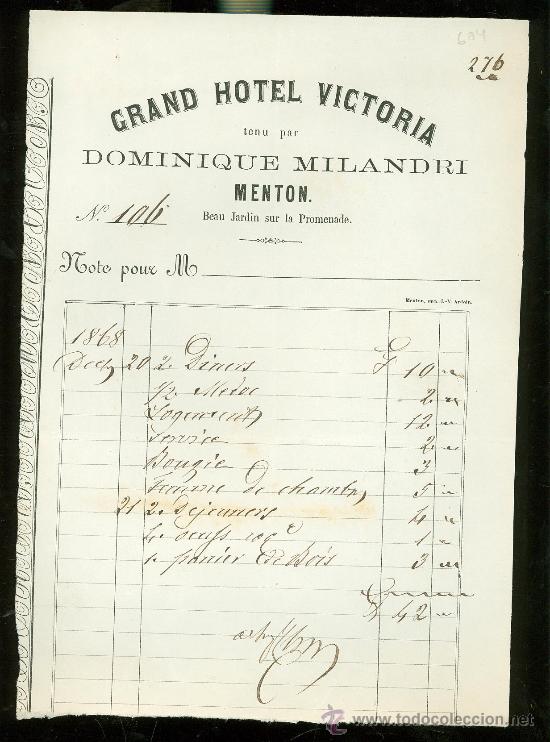 694
276
GRAND HOTEL VICTORIA
tenu par
DOMINIQUE MILANDRI
MENTON.
Nº 106
Beau Jardin sur la Promenade.
Note pour M
Menton, imp. J.-V. Ardoin.
1868
20 2 Diners F 10 "
1/2 Medoc 2 "
Logement 12 "
Service 2 "
Bougie 3
Femme de chambre 5 "
21 2 Dejeuners 4 "
4 oeufs 1 "
1 panier de Bois 3 "
42 "
todocoleccion
www.todocoleccion.net